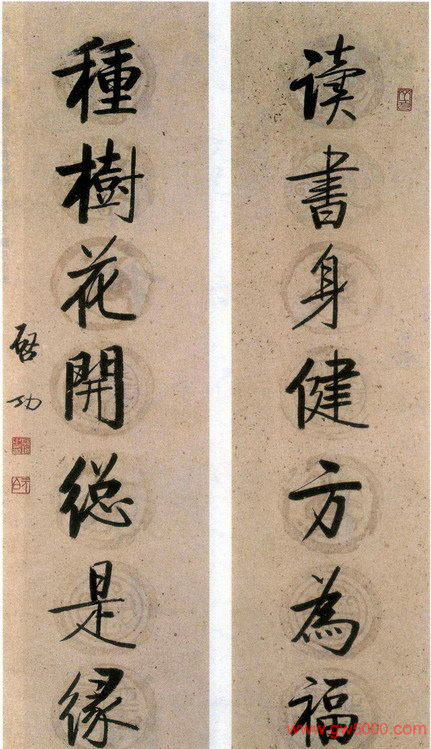 读書身健方為福
種樹花開總是緣
啓功
www.gw5000.com